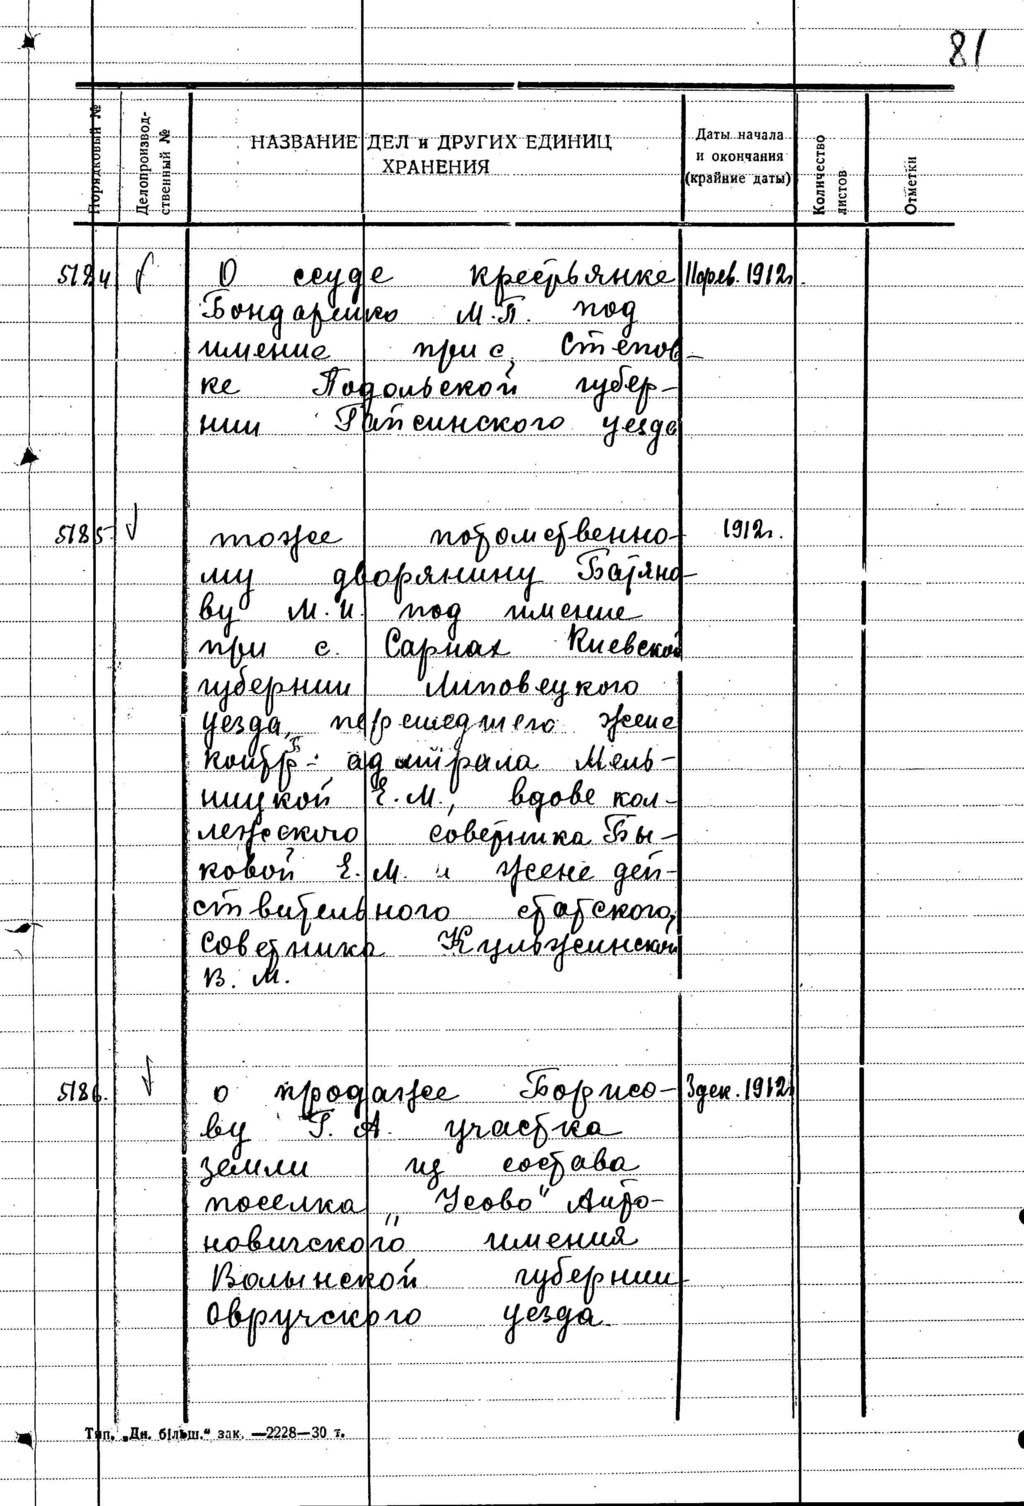 81
Порядковый №
Делопроизвод-
ственный №
НАЗВАНИЕ ДЕЛ и ДРУГИХ ЕДИНИЦ
ХРАНЕНИЯ
Даты начала
и окончания
(крайние даты)
Количество
листов
Отметки
5184 О ссуде крестьянке 11 фев. 1912г.
Бондаренко М.П. под
имение при с. Степов-
ке Подольской губер-
нии Гайсинского уезда
5185 тоже потомственно- 1912г.
му дворянину Батяно-
ву М.И. под имение
при с. Сарнах Киевской
губернии Липовецкого
уезда, перешедшего жене
контр-адмирала Мель-
ницкой Е.М., вдове кол-
лежского советника Бы-
ковой Е.М. и жене дей-
ствительного статского
советника Кульжинской
В.М.
5186. о продаже Борисо- 3 дек. 1912г
ву Г.А. участка
земли из состава
поселка „Усово" Анто-
новичского имения
Волынской губернии
Овручского уезда.
Тип. „Дн. більш." зак. —2228—30 т.